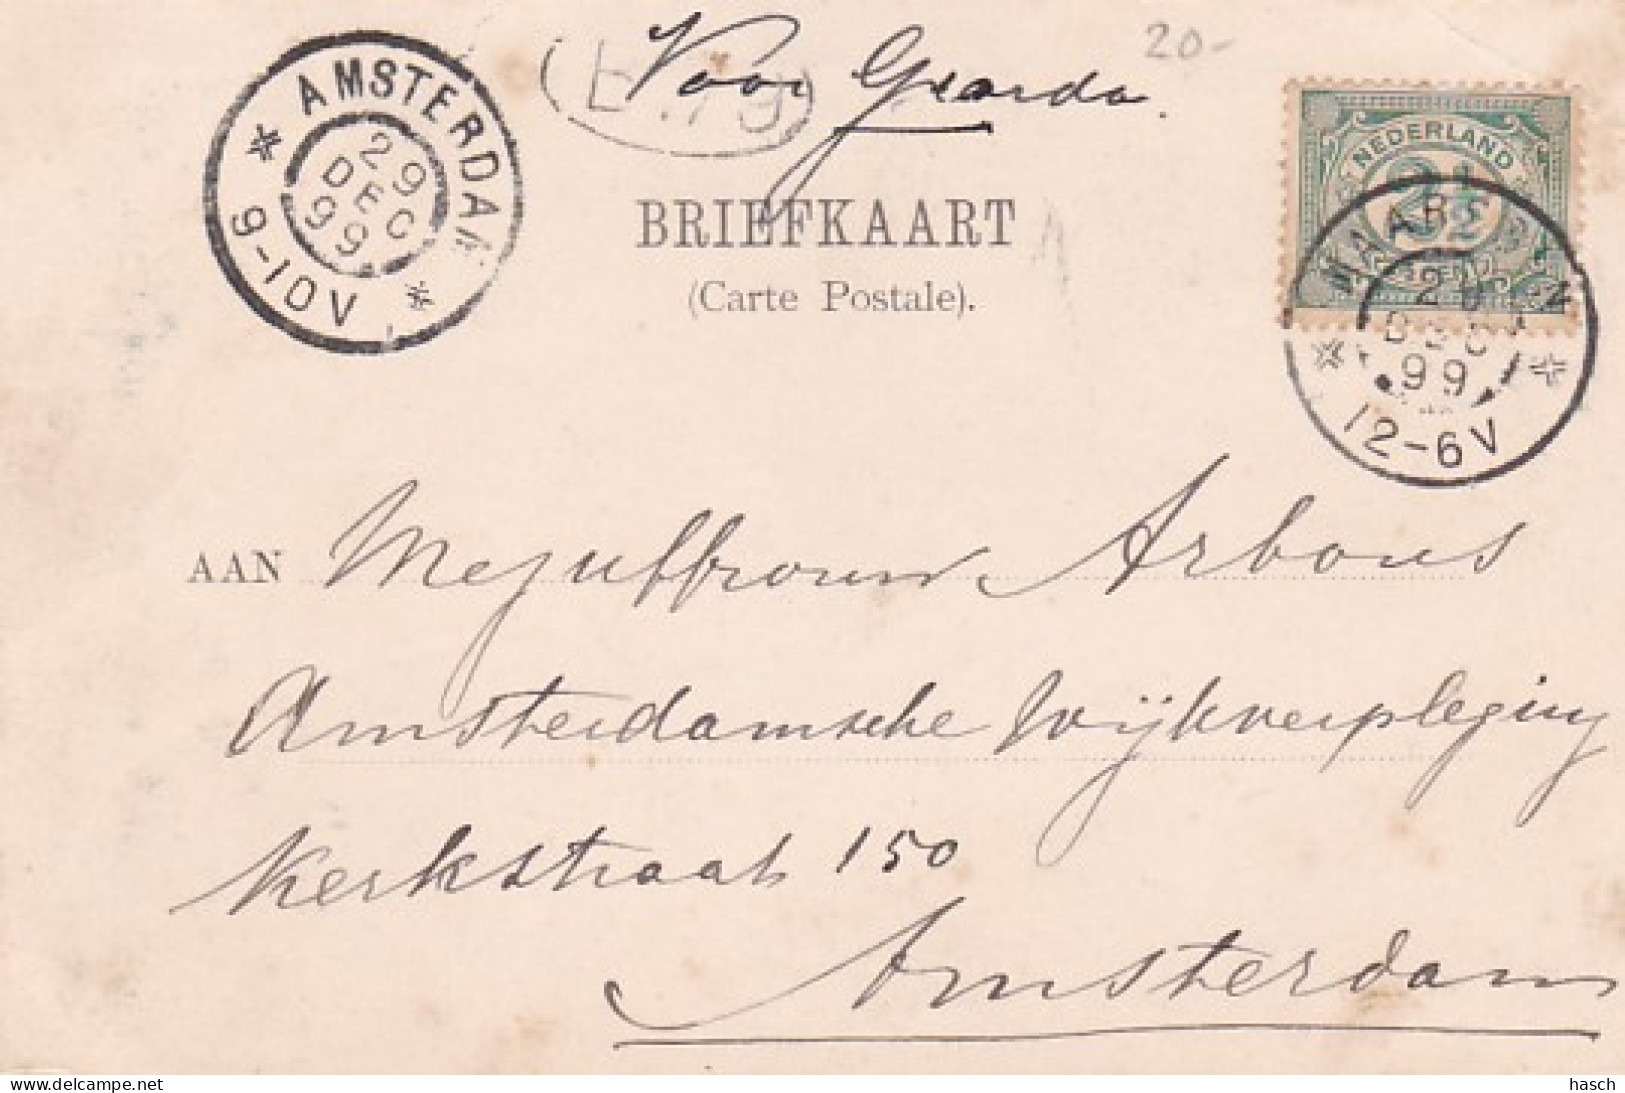 Voor Gerarda.
20-
AMSTERDAM
29
DEC
99
9-10V
BRIEFKAART
(Carte Postale).
NEDERLAND
2½
MAARSSEN
DEC
99
12-6V
AAN Mejuffrouw Arbous
Amsterdamsche Wijkverpleging
Kerkstraat 150
Amsterdam
delcampe.net
hasch